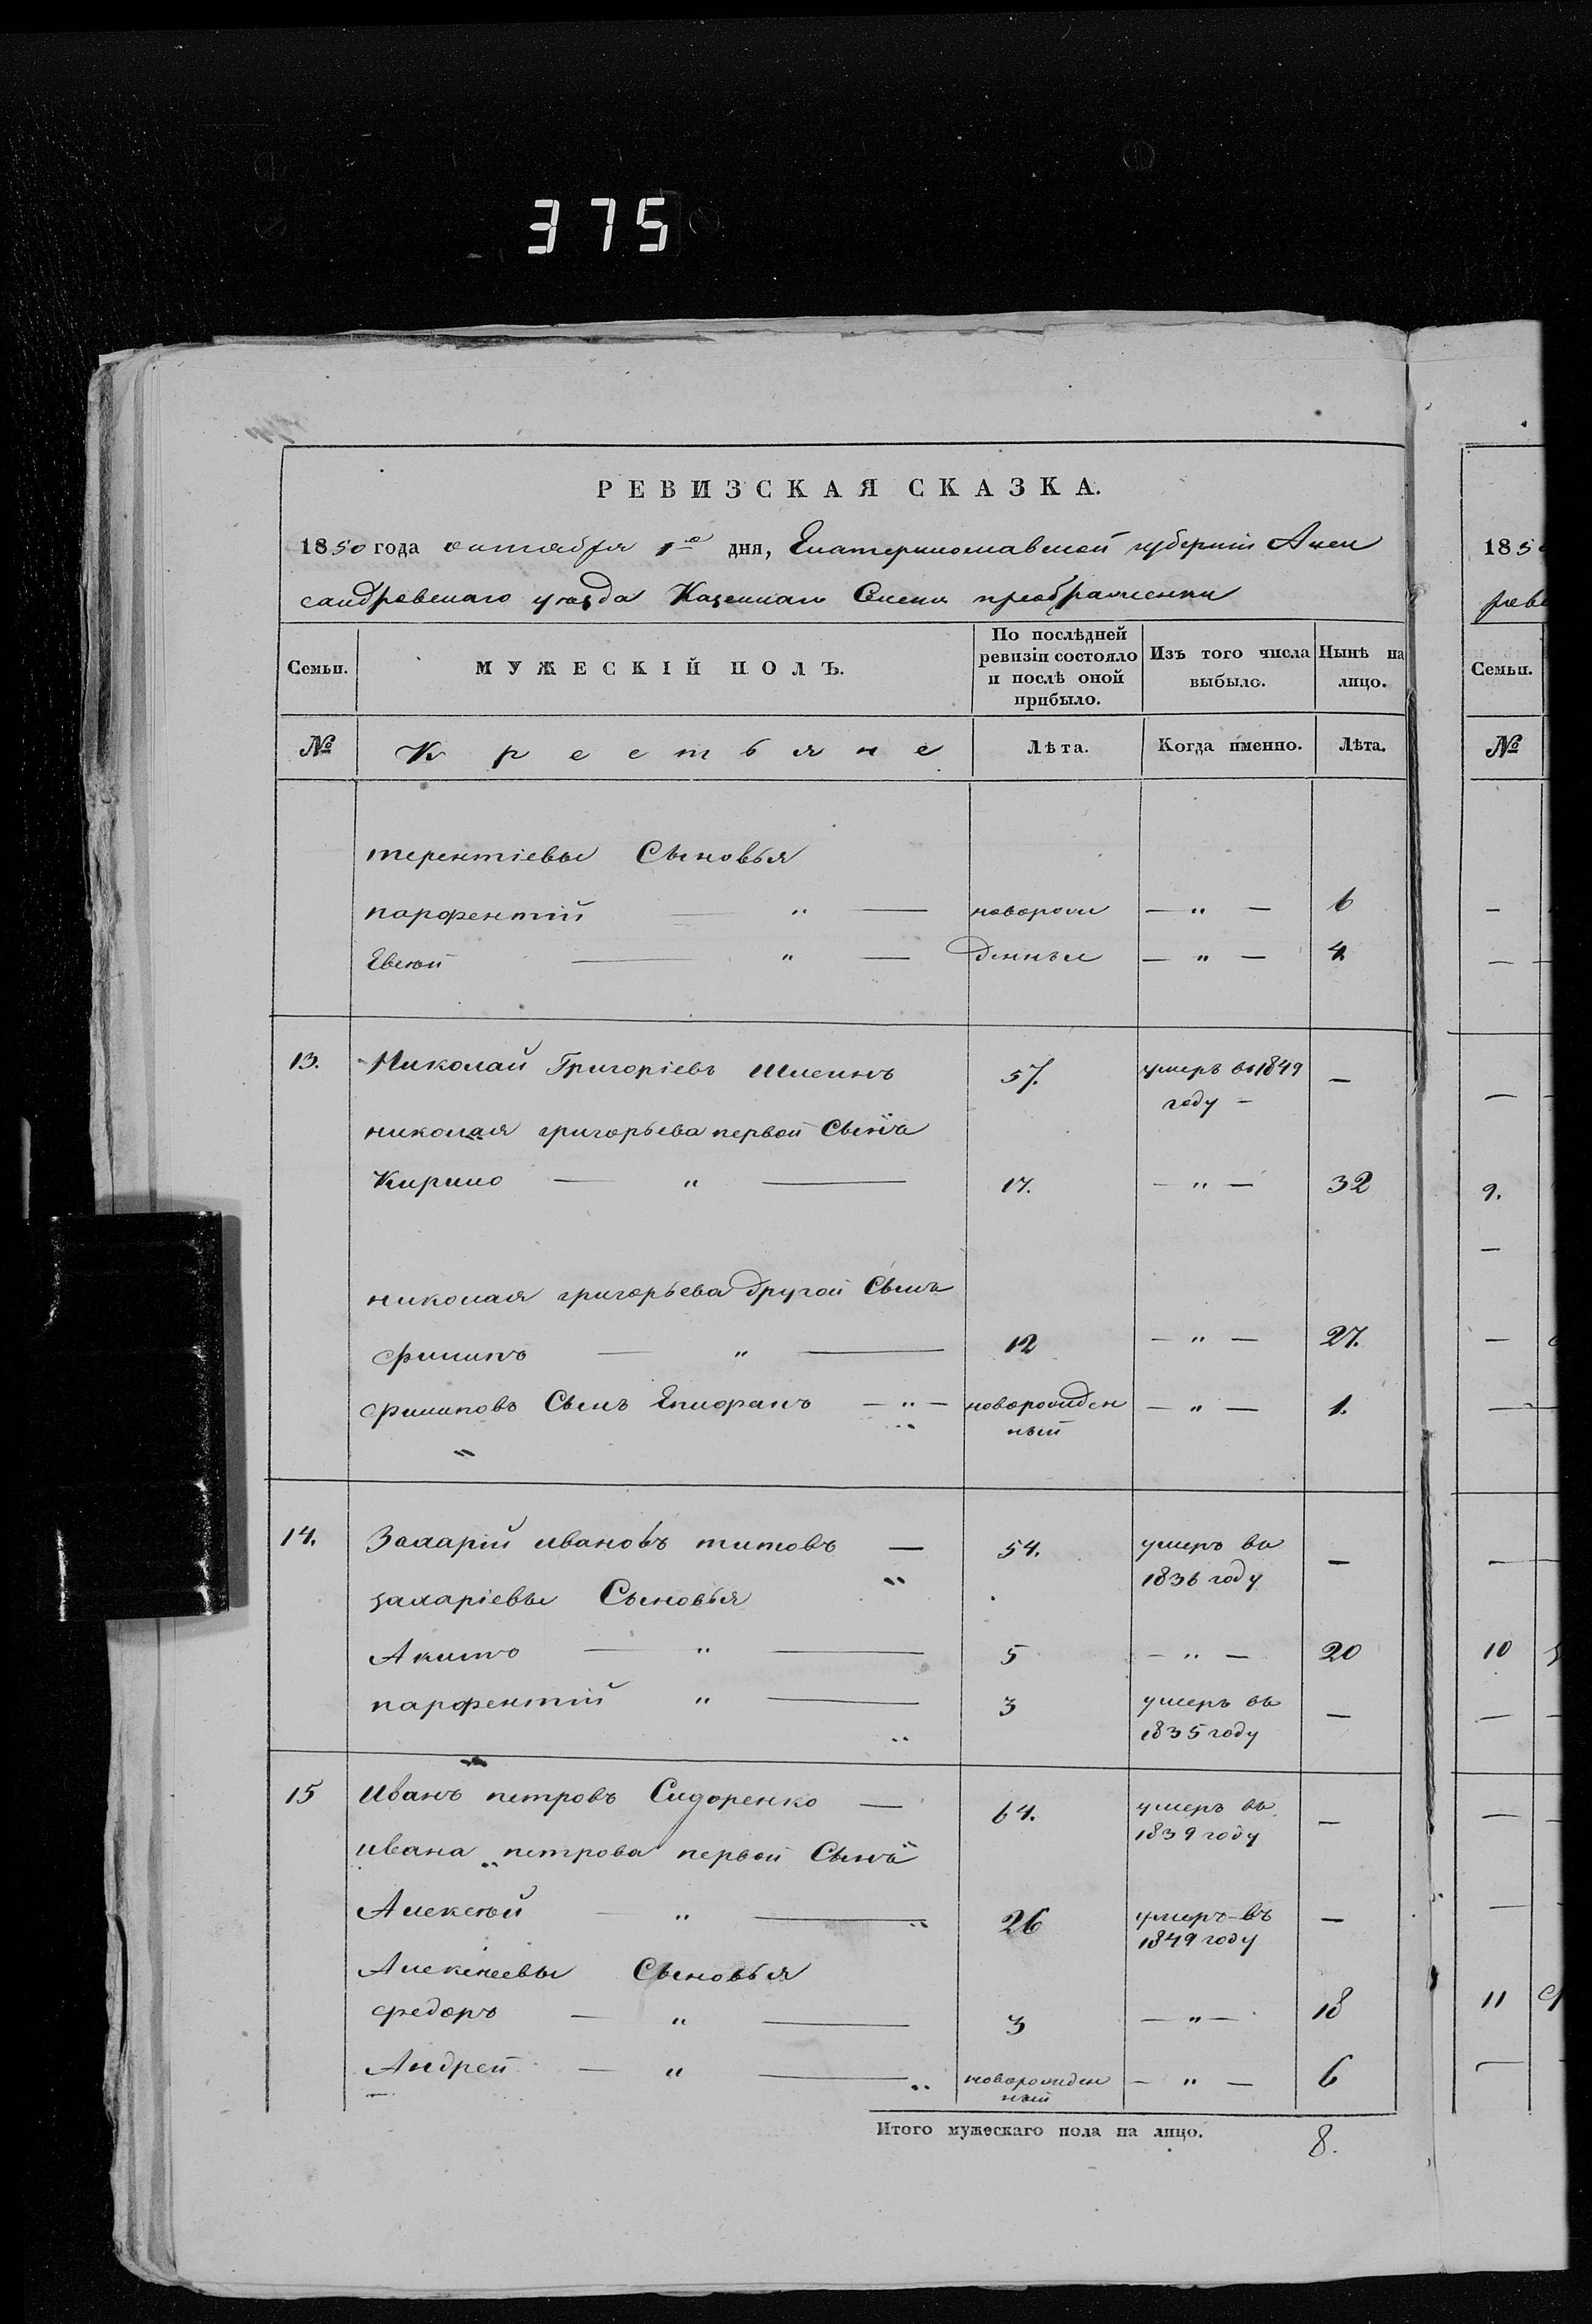 375
РЕВИЗСКАЯ СКАЗКА.
1850 года октября 1го дня, Екатеринославской губерніи Алек
сандровскаго уѣзда Казеннаго Селенія преображенки
Семьи. МУЖЕСКІЙ ПОЛЪ. По послѣдней ревизіи состояло и послѣ оной прибыло. Изъ того числа выбыло. Нынѣ на лицо.
№ Крестьяне Лѣта. Когда именно. Лѣта.
терентіевы Сыновья
парфентій — " — новорож — " — 6
Евсѣй — " — денные — " — 4
13. Николай Григоріевъ 57. умеръ въ 1849 —
году —
николая григорьева первой Сынъ
Кирило — " — 17. — " — 32
николая григорьева другой Сынъ
филипъ — " — 12 — " — 27.
филиповъ Сынъ Епифанъ — " — новорожден — " — 1.
ный
14. Захарій ивановъ титовъ — 54. умеръ въ —
1836 году
захаріевы Сыновья
Акимъ — " — 5 — " — 20
парфентій " — 3 умеръ въ —
1835 году
15 Иванъ петровъ Сидоренко — 64. умеръ въ —
1839 году
ивана петрова первой Сынъ
Алексѣй — " — 26 умеръ въ —
1849 году
Алексѣевы Сыновья
федоръ — " — 3 — " — 18
Андрей — " — новорожден — " — 6
ный
Итого мужескаго пола на лицо. 8.
185
реви
Семьи.
№
9.
10
11